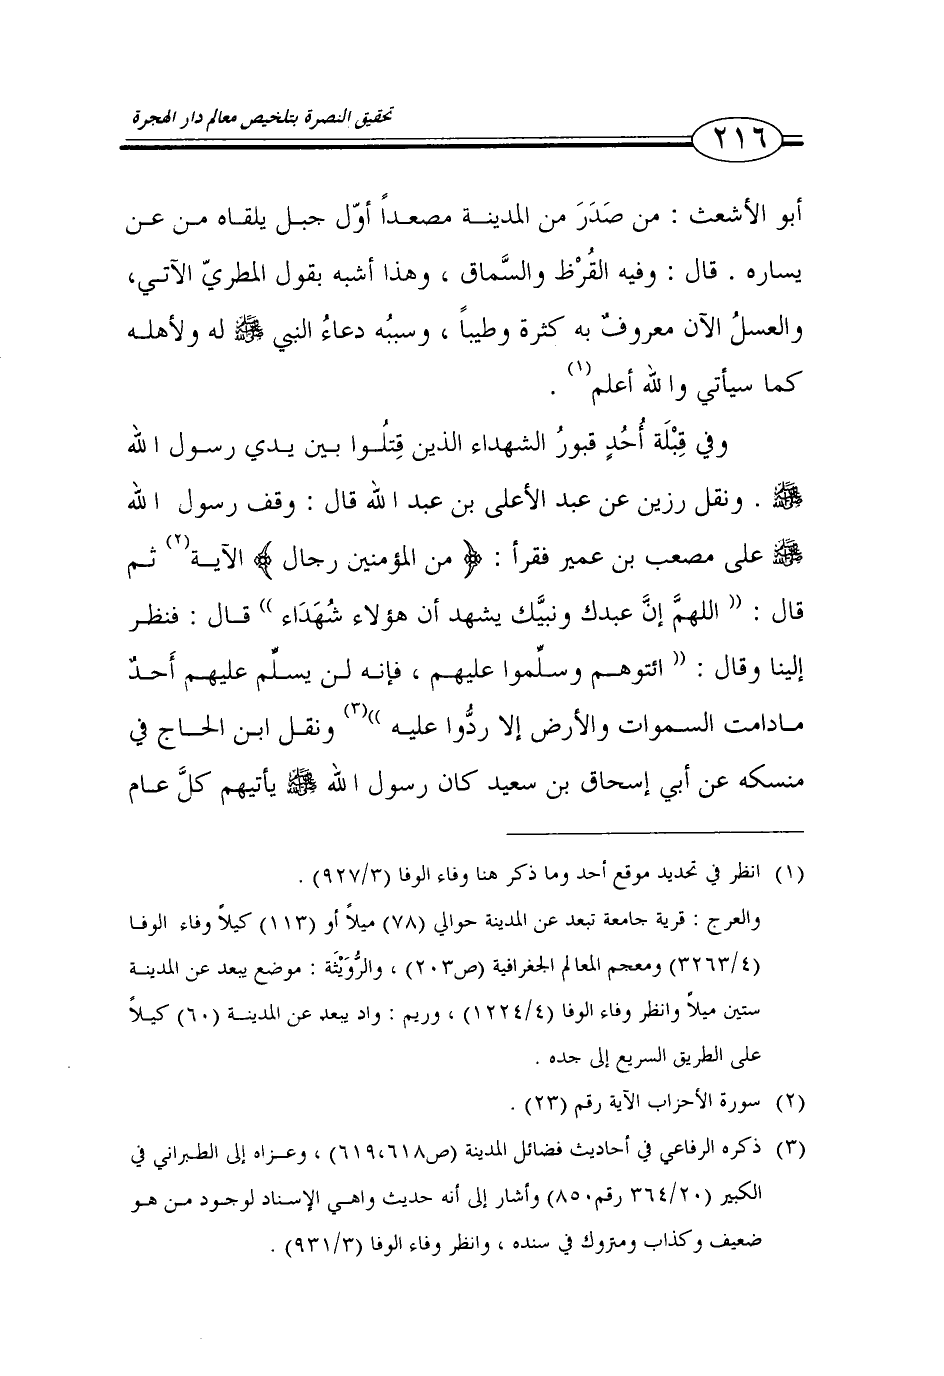 تحقيق النصرة بتلخيص معالم دار الهجرة
٢١٦
أبو الأشعث : من صَدَرَ من المدينـة مصعداً أوّل جبـل يلقـاه مـن عـن
يساره . قال : وفيه القُرْظ والسَّماق ، وهذا أشبه بقول المطريّ الآتـي،
والعسلُ الآن معروفٌ به كثرة وطيباً ، وسببُه دعاءُ النبي ﷺ له ولأهلـه
كما سيأتي والله أعلم(١) .
وفي قِبْلَة أُحُدٍ قبورُ الشهداء الذين قِتلُـوا بـين يـدي رسـول الله
ﷺ . ونقل رزين عن عبد الأعلى بن عبد الله قال : وقف رسول الله
ﷺ على مصعب بن عمير فقرأ : ﴿ من المؤمنين رجال ﴾ الآيـة(٢) ثـم
قال : (( اللهمَّ إنَّ عبدك ونبيَّك يشهد أن هؤلاء شُهَدَاء )) قـال : فنظـر
إلينا وقال : (( ائتوهـم وسلِّموا عليهم ، فإنـه لـن يسـلِّم عليهـم أَحـدٌ
مـادامت السـموات والأرض إلا ردُّوا عليـه ))(٣) ونقـل ابـن الحـاج في
منسكه عن أبي إسحاق بن سعيد كان رسول الله ﷺ يأتيهم كلَّ عـام
(١) انظر في تحديد موقع أحد وما ذكر هنا وفاء الوفا (٩٢٧/٣) .
والعرج : قرية جامعة تبعد عن المدينة حوالي (٧٨) ميلاً أو (١١٣) كيلاً وفاء الوفـا
(٣٢٦٣/٤) ومعجم المعالم الجغرافية (ص٢٠٣) ، والرُّوَيْثَة : موضع يبعد عن المدينـة
ستين ميلاً وانظر وفاء الوفا (١٢٢٤/٤) ، وريم : واد يبعد عن المدينـة (٦٠) كيـلاً
على الطريق السريع إلى جده .
(٢) سورة الأحزاب الآية رقم (٢٣) .
(٣) ذكره الرفاعي في أحاديث فضائل المدينة (ص٦١٨،٦١٩) ، وعـزاه إلى الطـبراني في
الكبير (٣٦٤/٢٠ رقم٨٥٠) وأشار إلى أنه حديث واهـي الإسناد لوجـود مـن هـو
ضعيف وكذاب ومتروك في سنده ، وانظر وفاء الوفا (٩٣١/٣) .